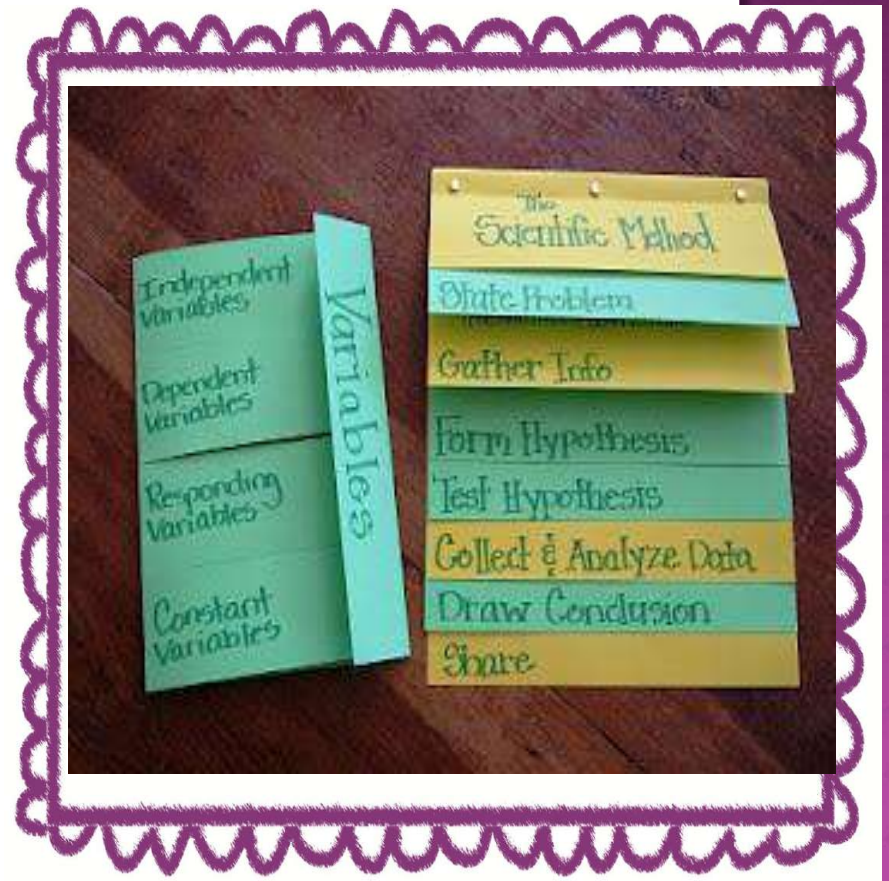 Independent
Variables
Dependent
Variables
Responding
Variables
Constant
Variables
Variables
The
Scientific Method
State Problem
Gather Info
Form Hypothesis
Test Hypothesis
Collect & Analyze Data
Draw Conclusion
Share